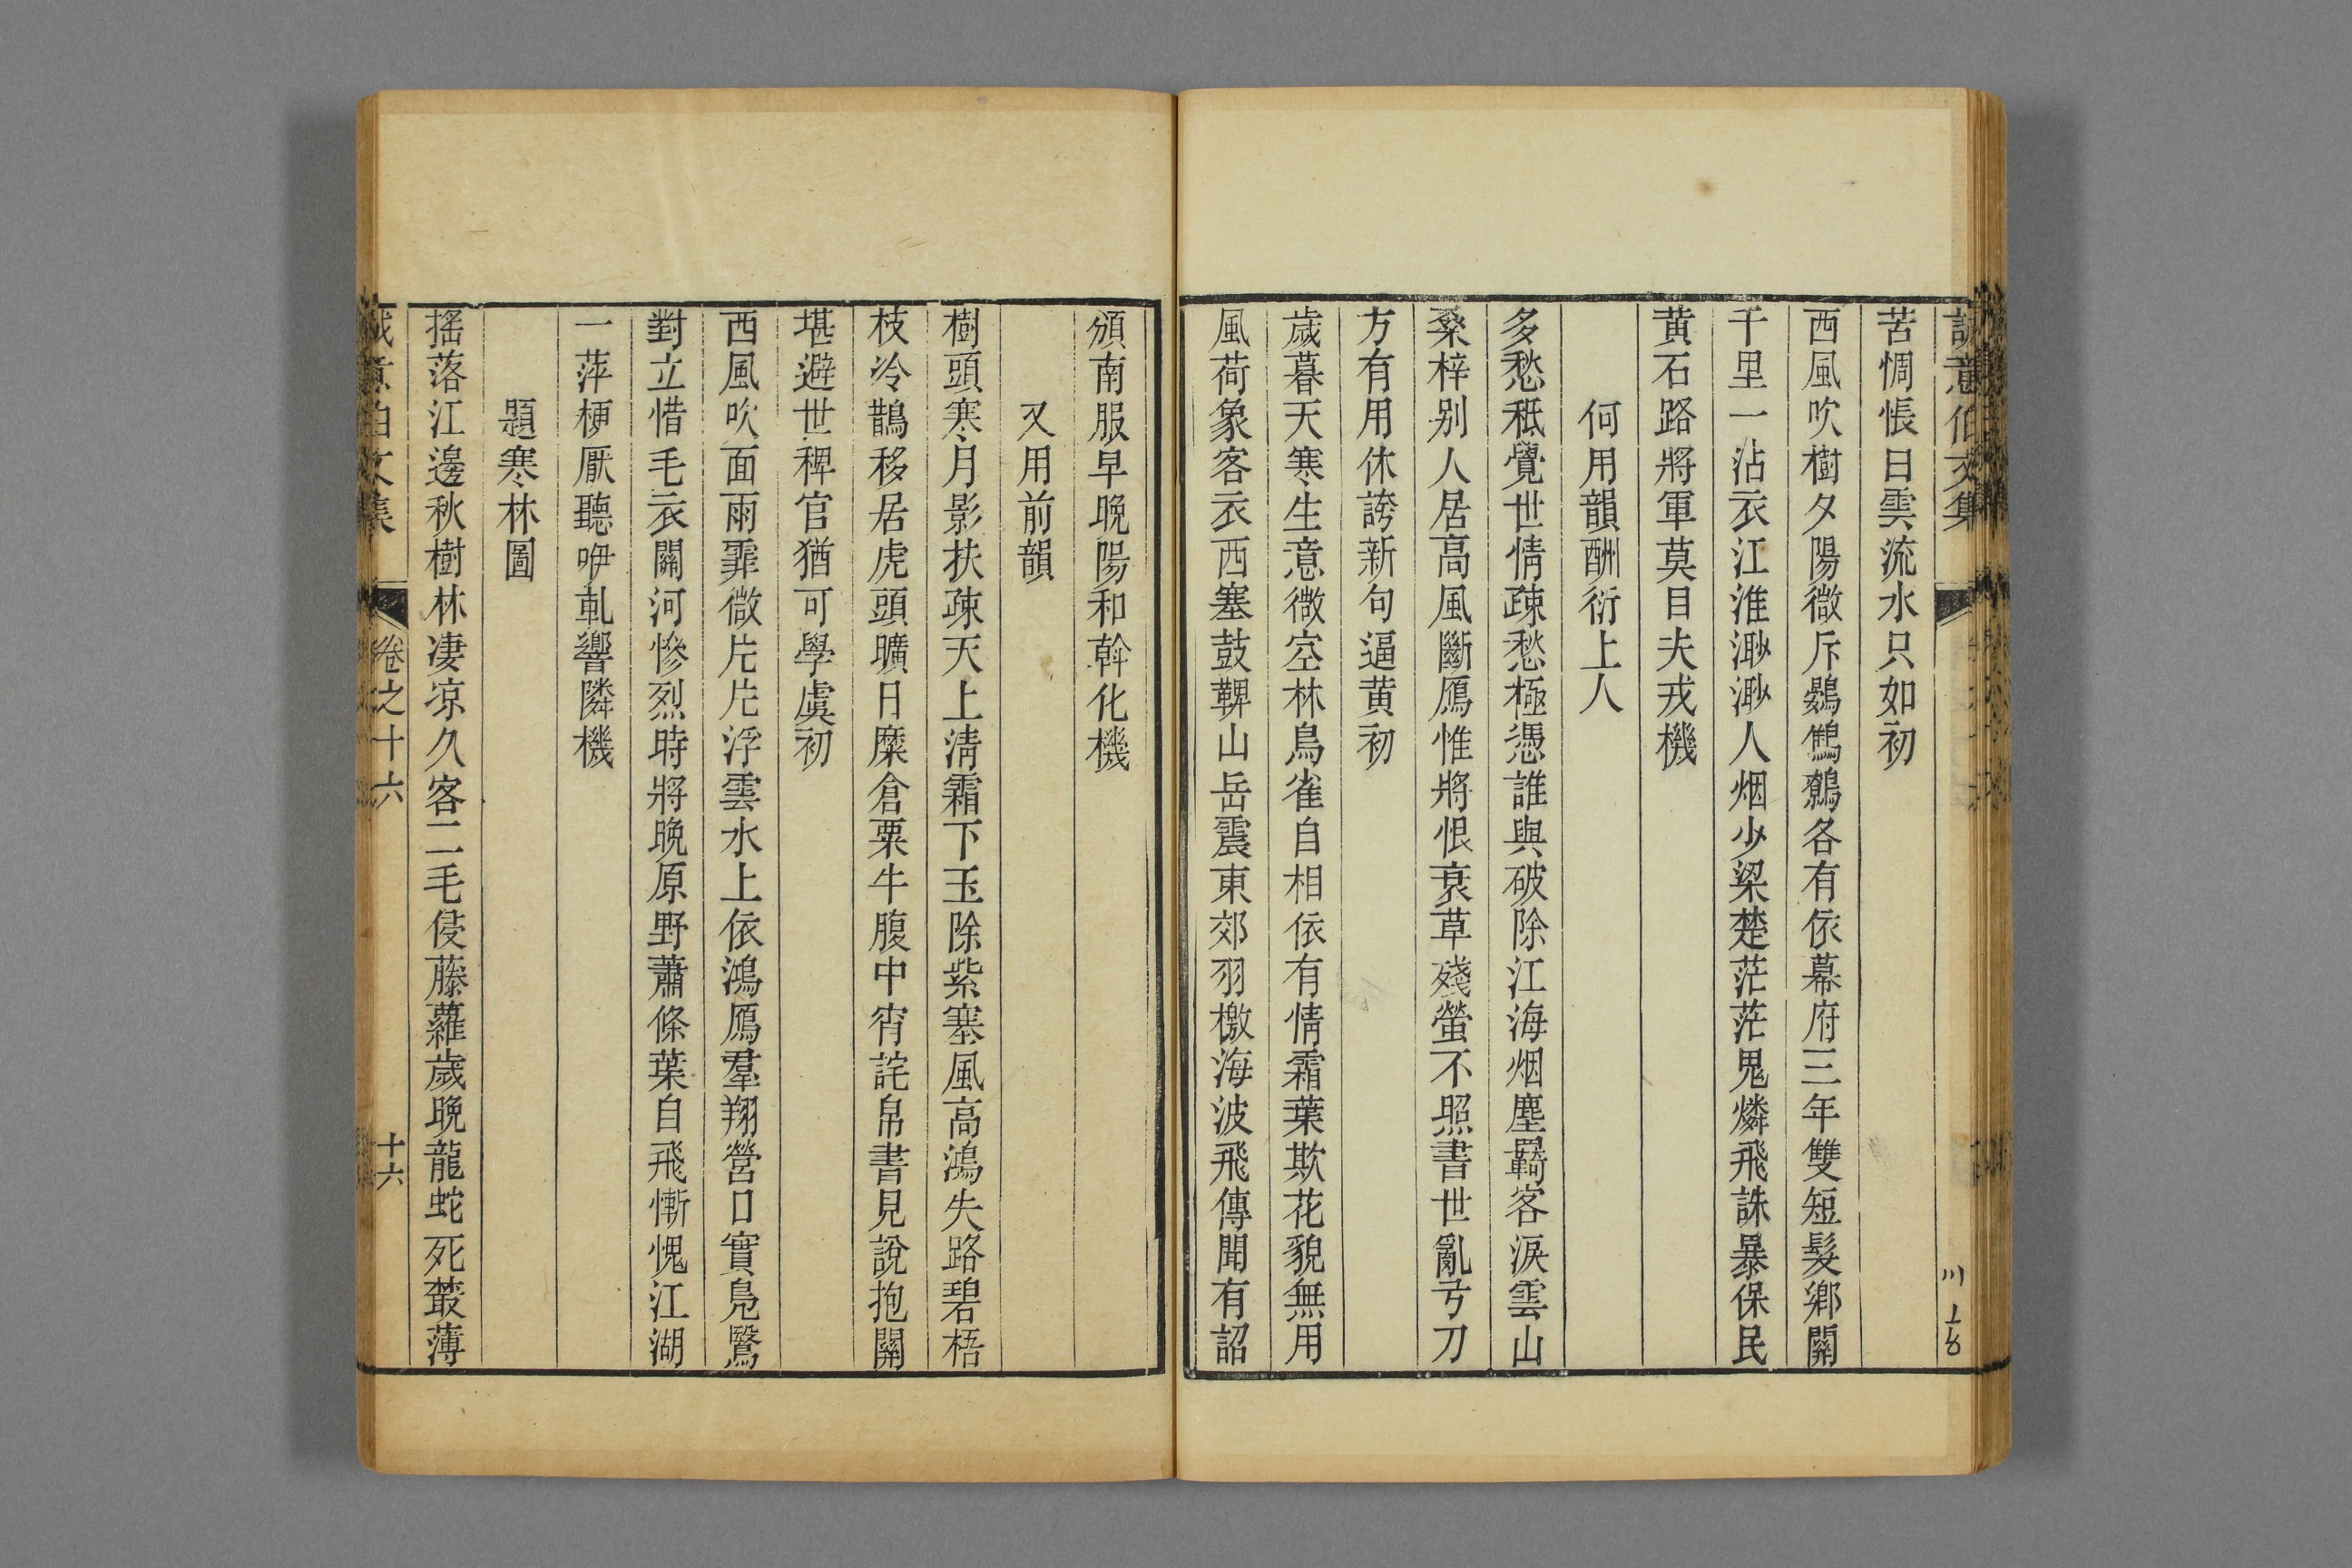 誠意伯文集
苦惆悵日雲流水只如初
西風吹樹夕陽微斥鷃鷦鷯各有依幕府三年雙短髮鄉關
千里一沾衣江淮渺渺人烟少梁楚茫茫鬼燐飛誅暴保民
黄石路將軍莫目夫戎機
何用韻酬衍上人
多愁秪覺世情疎愁極憑誰與破除江海烟塵羇客淚雲山
桑梓別人居高風斷鴈惟將恨衰草殘螢不照書世亂弓刀
方有用休誇新句逼黄初
歲暮天寒生意微空林鳥雀自相依有情霜葉欺花貌無用
風荷象客衣西塞鼓鞞山岳震東郊羽檄海波飛傳聞有詔
頒南服早晚陽和斡化機
又用前韻
樹頭寒月影扶疎天上清霜下玉除紫塞風高鴻失路碧梧
枝冷鵲移居虎頭曠日糜倉粟牛腹中宵詫帛書見說抱關
堪避世稗官猶可學虞初
西風吹面雨霏微片片浮雲水上依鴻鴈羣翔營口實鳬鷖
對立惜毛衣關河慘烈時將晚原野蕭條葉自飛慚愧江湖
一萍梗厭聽咿軋響隣機
題寒林圖
搖落江邊秋樹林凄凉久客二毛侵藤蘿歲晚龍蛇死藂薄
誠意伯文集
卷之十六
十六